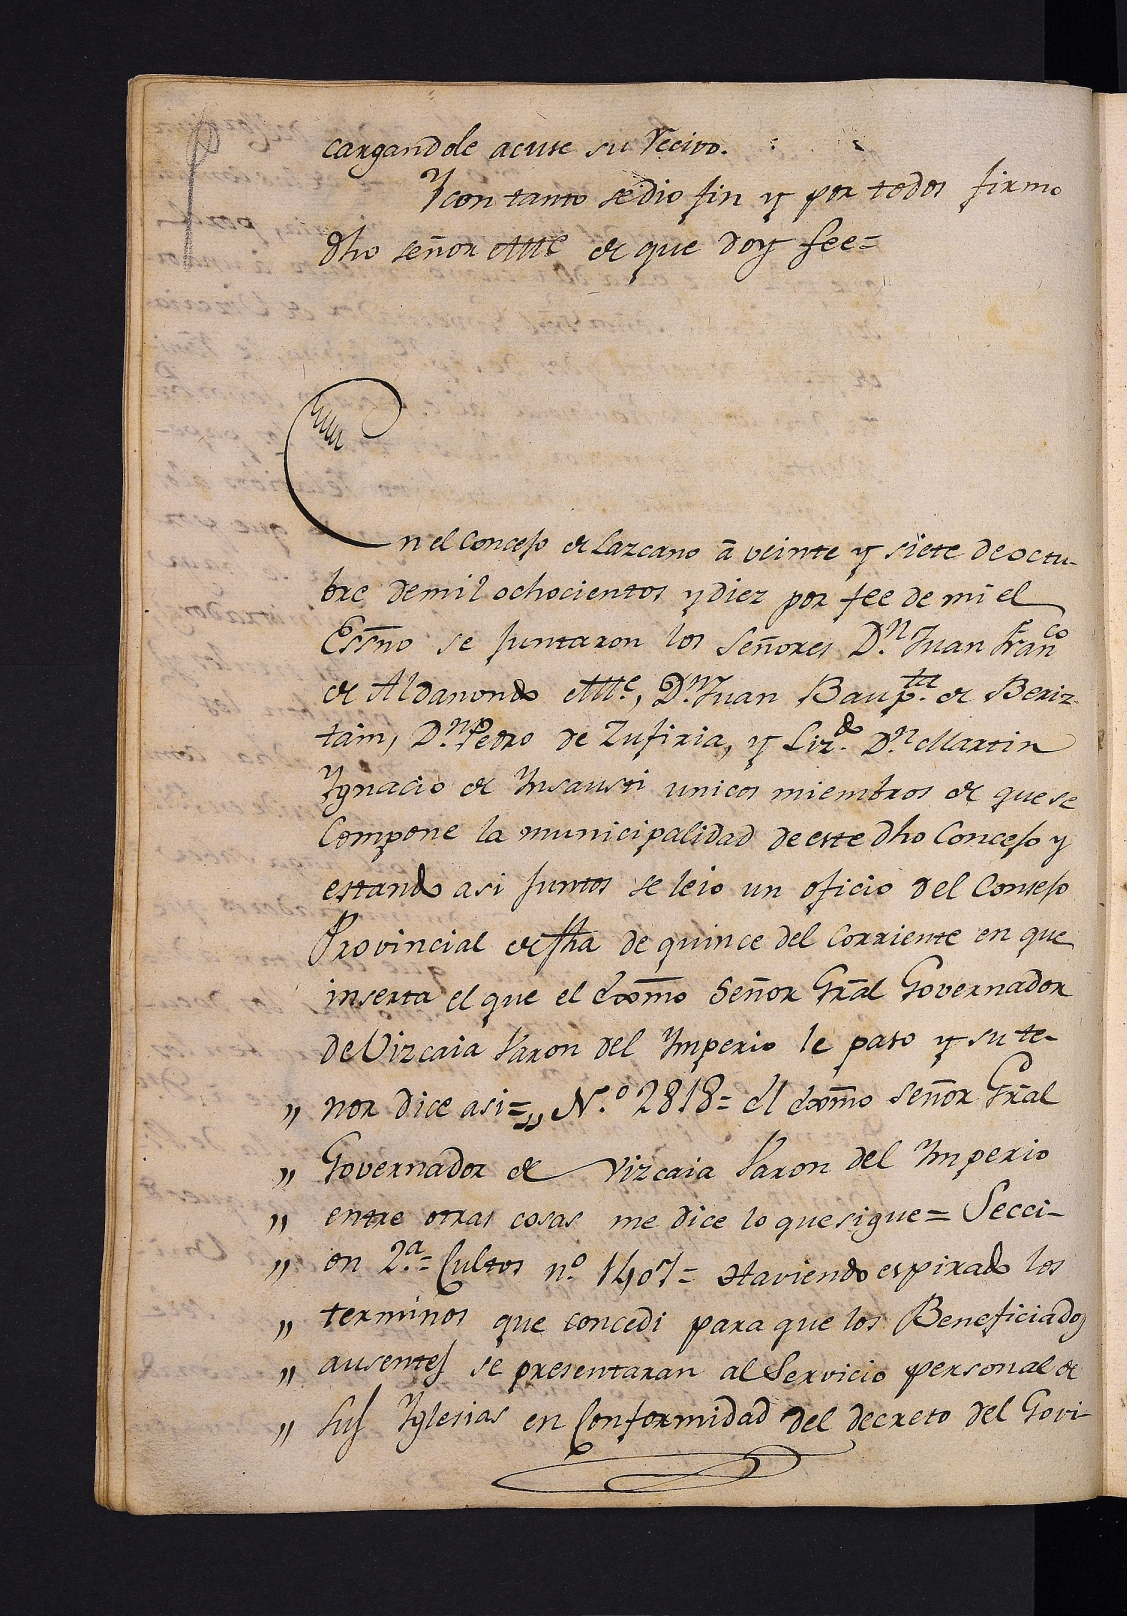 cargandole acuse su Recivo.
Y con tanto se dio fin y por todos firmo
dho señor Alle de que doy fee=
En el Concejo de Lazcano á veinte y siete de octu-
bre de mil ochocientos y diez por fee de mi el
Essno se juntaron los Señores Dn. Juan Franco
de Aldanondo Alle, Dn. Juan Baupta. de Beriz-
tain, Dn. Pedro de Zufiria, y Lizdo. Dn. Martin
Ygnacio de Ynsausti unicos miembros de que se
Compone la municipalidad de este dho Concejo y
estando asi juntos se leio un oficio del Consejo
Provincial de fha de quince del Corriente en que
inserta el que el Exmo Señor Gral Governador
de Vizcaia Varon del Ymperio le paso y su te-
" nor dice asi= " N.º 2818= El Exmo señor Gral
" Governador de Vizcaia Varon del Ymperio
" entre otras cosas me dice lo que sigue= Secci-
" on 2.ª= Cultos nº. 1407= Haviendo espirado los
" terminos que concedi para que los Beneficiados
" ausentes se presentaran al Servicio personal de
" sus Yglesias en Conformidad del decreto del Govi-